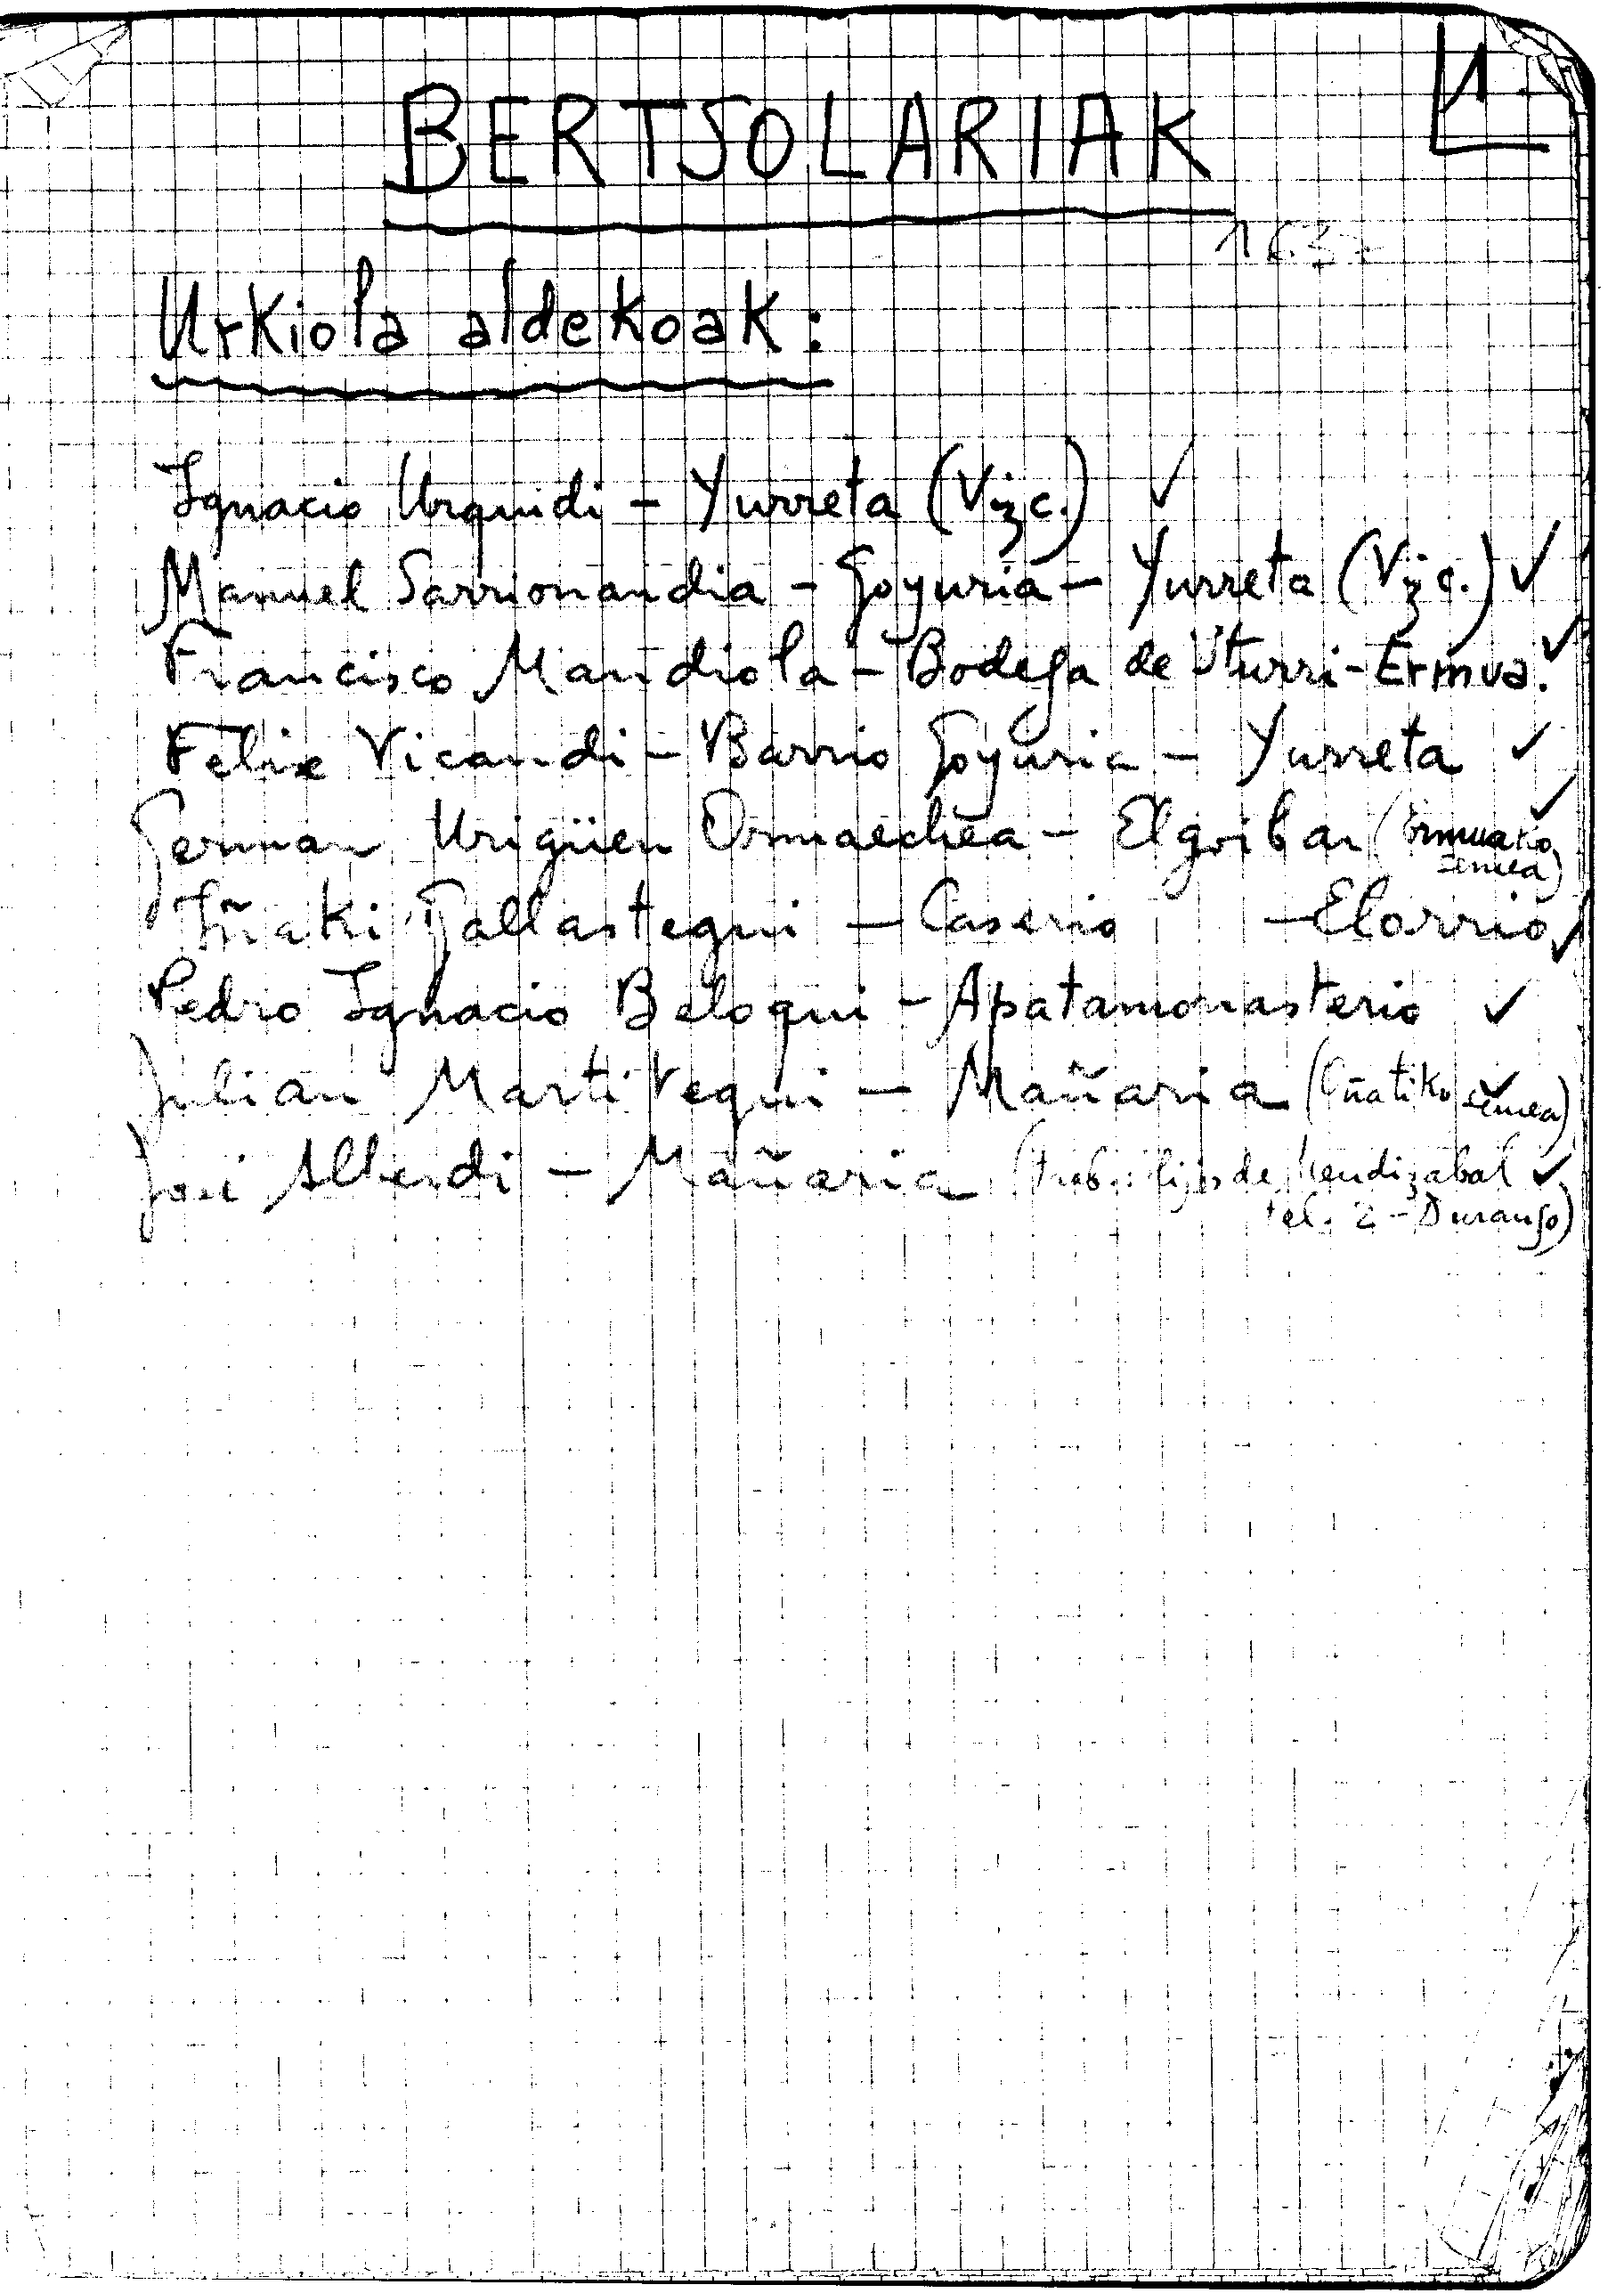 1.
BERTSOLARIAK
Urkiola aldekoak:
Ignacio Urquidi - Yurreta (Vizc.) ✓
Manuel Sarrionandia - Goyuria - Yurreta (Vizc.) ✓
Francisco Mandiola - Bodega de Iturri - Ermua. ✓
Felix Vicandi - Barrio Goyuria - Yurreta ✓
German Urigüen Ormaechea - Elgoibar (Ermuako ✓
semea)
Iñaki Gallastegui - Caserio - Elorrio ✓
Pedro Ignacio Beloqui - Apatamonasterio ✓
Julian Martitegui - Mañaria (Oñatiko semea) ✓
José Alberdi - Mañaria (trab.: hijos de Mendizabal ✓
tel. 2 - Durango)